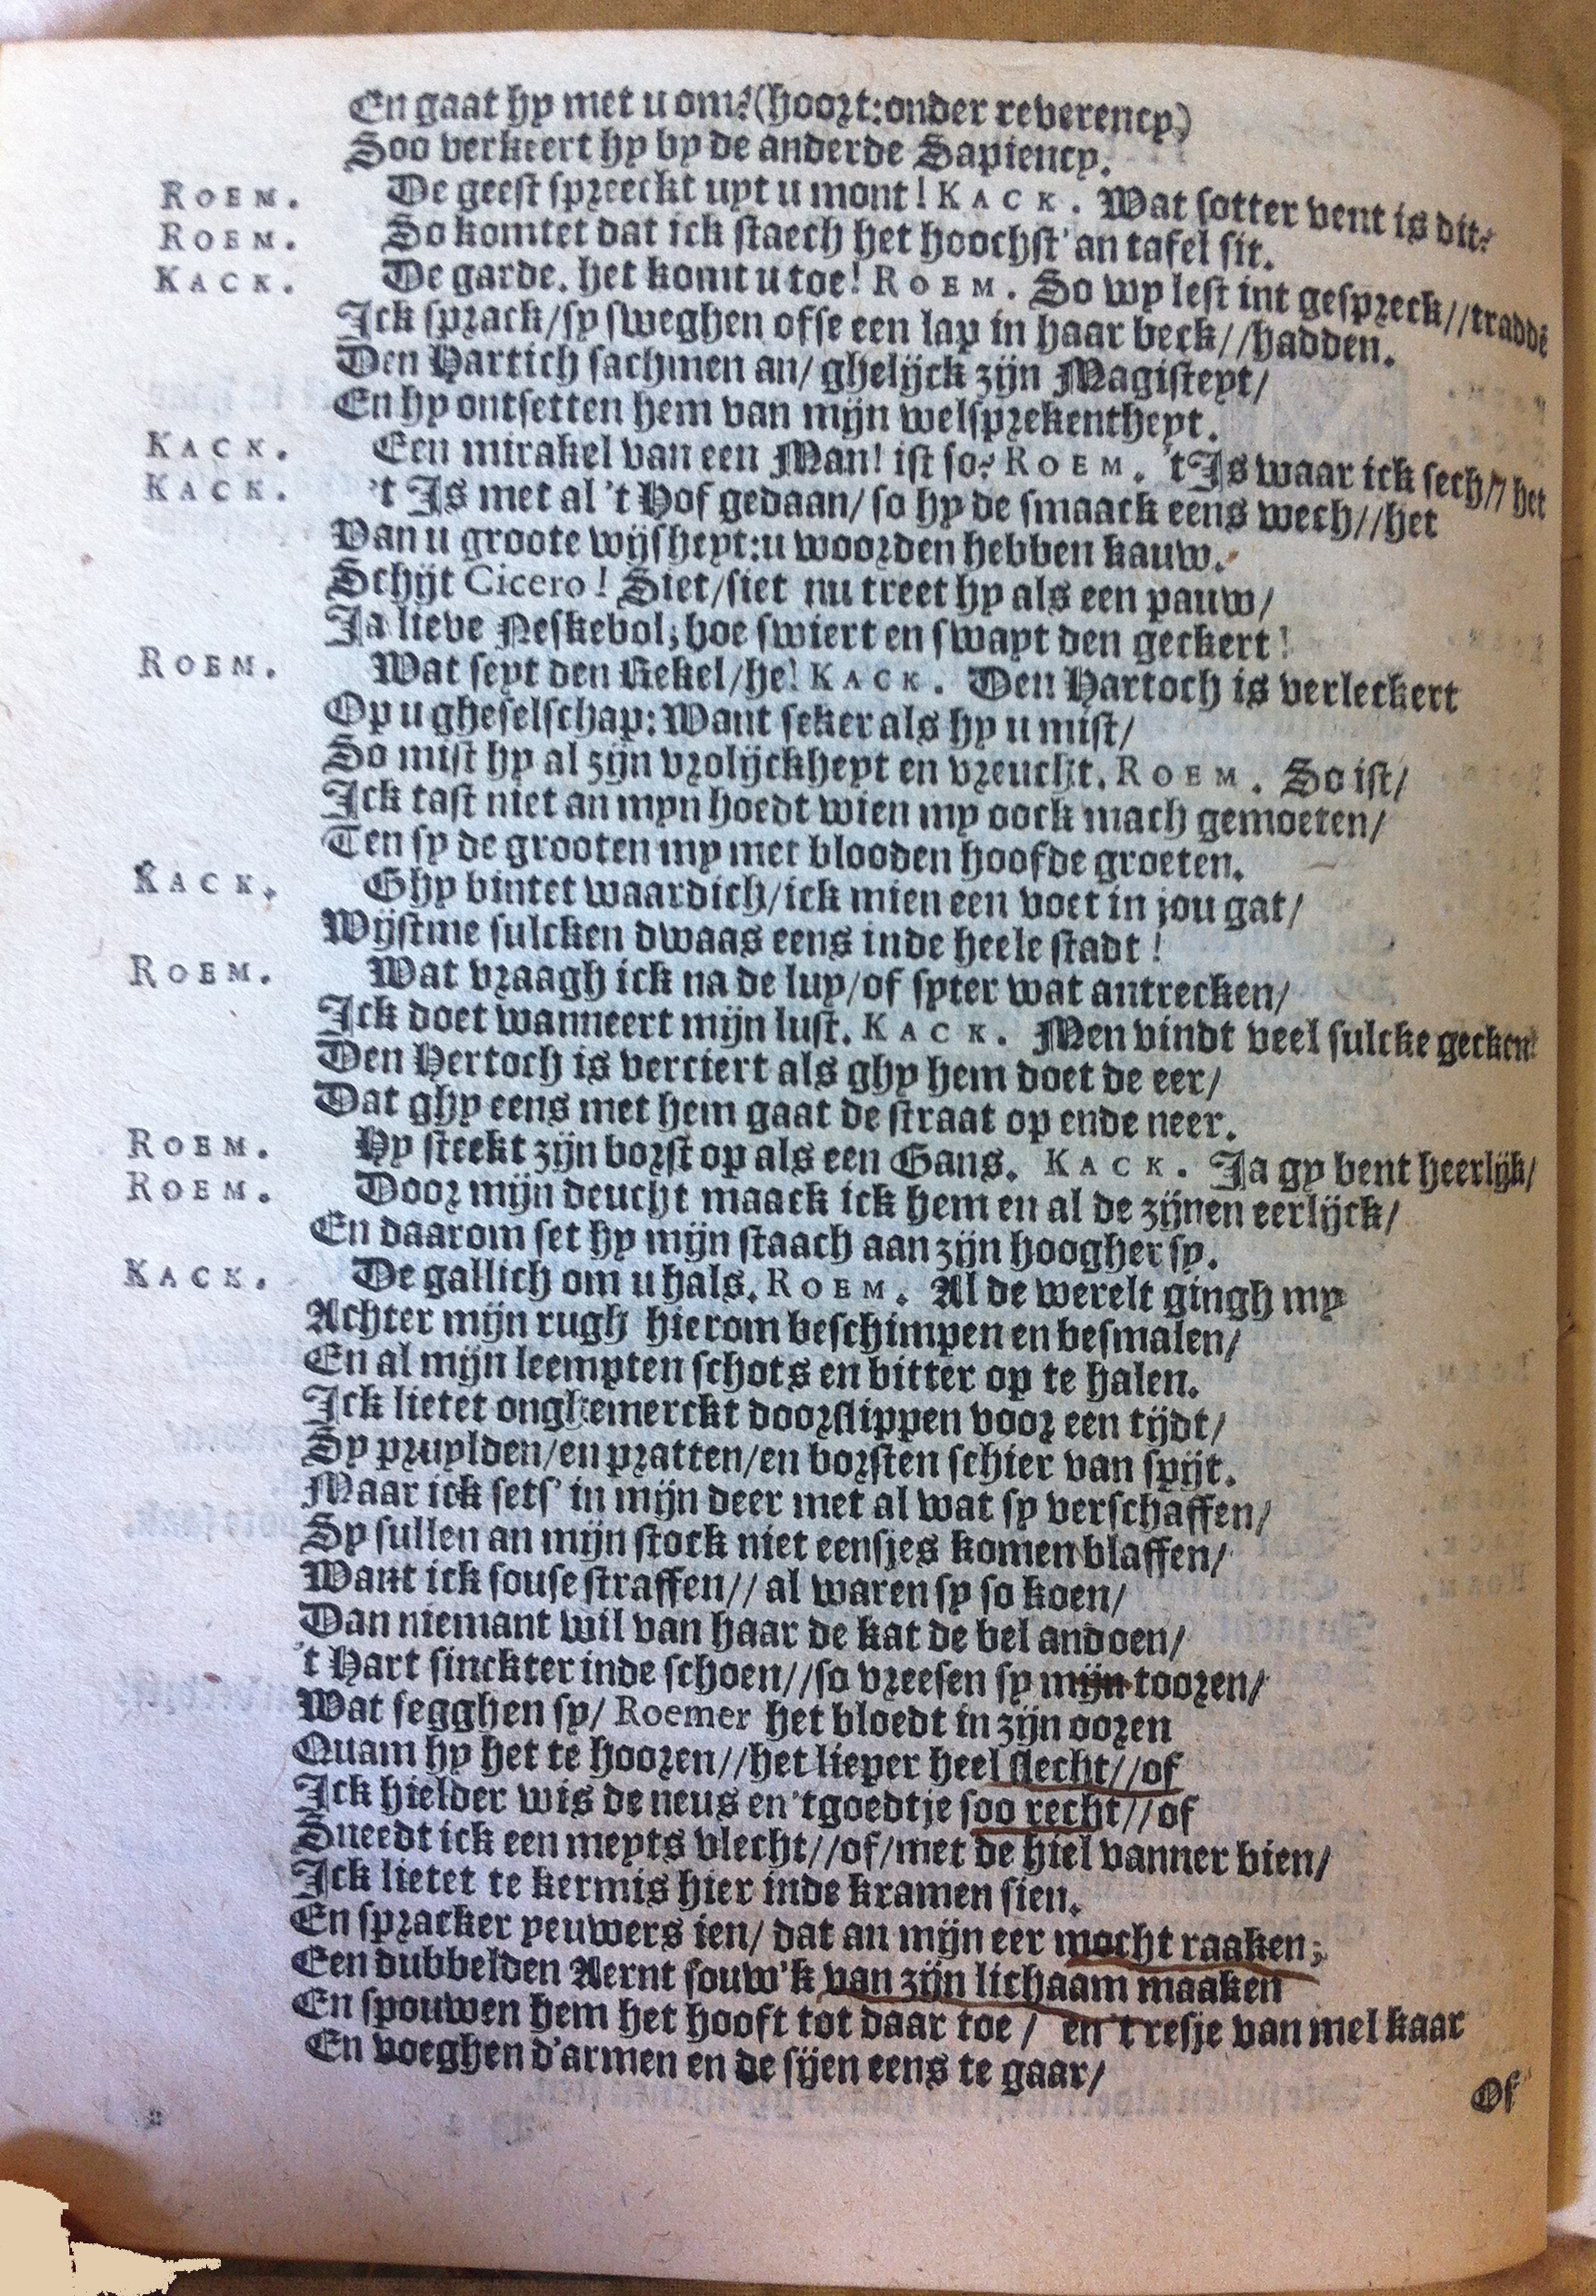 En gaat hy met u om?(hoort:onder reverency)
Soo verkeert hy by de anderde Sapiency.
ROEM. De geest spreeckt uyt u mont! KACK. Wat sotter vent is dit?
ROEM. So komtet dat ick staech het hoochst' an tafel sit.
KACK. De garde. het komt u toe! ROEM. So wy lest int gespreck//traddē
Ick sprack/sy sweghen ofse een lap in haar beck//hadden.
Den Hartich sachmen an/ ghelijck zijn Magisteyt/
En hy ontsetten hem van mijn welsprekentheyt.
KACK. Een mirakel van een Man! ist so? ROEM. 't Is waar ick sech//het
KACK. 't Is met al 't Hof gedaan/ so hy de smaack eens wech//het
Van u groote wijsheyt:u woorden hebben kauw.
Schijt Cicero! Siet/siet nu treet hy als een pauw/
Ja lieve Neskebol, hoe swiert en swayt den geckert!
ROEM. Wat seyt den Rekel/he! KACK. Den Hartoch is verleckert
Op u gheselschap: Want seker als hy u mist/
So mist hy al zijn vrolijckheyt en vreucht. ROEM. So ist/
Ick tast niet an myn hoedt wien my oock mach gemoeten/
Ten sy de grooten my met blooden hoofde groeten.
KACK. Ghy bintet waardich/ick mien een voet in jou gat/
Wijstme sulcken dwaas eens inde heele stadt!
ROEM. Wat vraagh ick na de luy/of syter wat antrecken/
Ick doet wanneert mijn lust. KACK. Men vindt veel sulcke gecken!
Den Hertoch is verciert als ghy hem doet de eer/
Dat ghy eens met hem gaat de straat op ende neer.
ROEM. Hy steekt zijn borst op als een Gans. KACK. Ja gy bent heerlijk/
ROEM. Door mijn deucht maack ick hem en al de zijnen eerlijck/
En daarom set hy mijn staach aan zijn hoogher sy.
KACK. De gallich om u hals. ROEM. Al de werelt gingh my
Achter mijn rugh hierom beschimpen en besmalen/
En al mijn leempten schots en bitter op te halen.
Ick lietet onghemerckt doorslippen voor een tijdt/
Sy pruylden/en pratten/en borsten schier van spijt.
Maar ick sets' in mijn deer met al wat sy verschaffen/
Sy sullen an mijn stock niet eensjes komen blaffen/
Want ick souse straffen// al waren sy so koen/
Dan niemant wil van haar de kat de bel andoen/
't Hart sinckter inde schoen//so vreesen sy mijn tooren/
Wat segghen sy/ Roemer het bloedt in zijn ooren
Quam hy het te hooren//het lieper heel slecht//of
Ick hielder wis de neus en 'tgoedtje soo recht//of
Sneedt ick een meyts vlecht//of/met de hiel vanner bien/
Ick lietet te kermis hier inde kramen sien.
En spracker yeuwers ien/ dat an mijn eer mocht raaken;
Een dubbelden Aernt souw'k van zijn lichaam maaken
En spouwen hem het hooft tot daar toe / en 't resje van mel kaar
En voeghen d'armen en de sijen eens te gaar/
Of